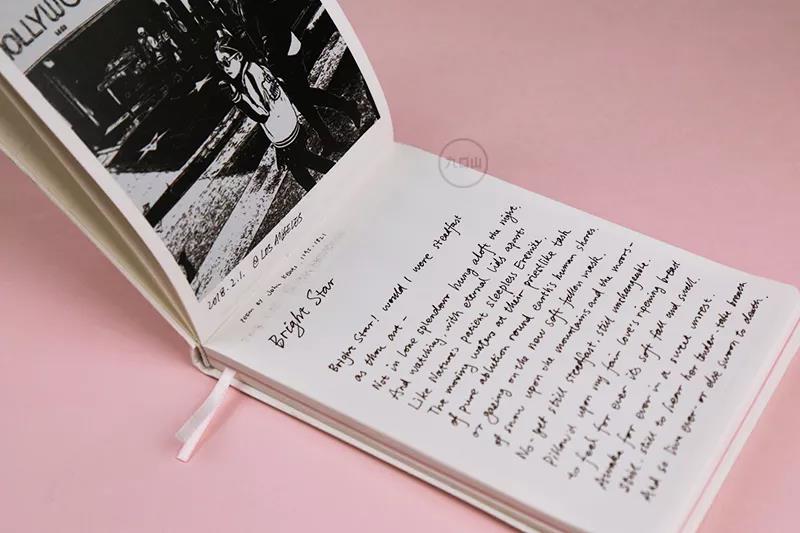 OLLYWO
2018. 2. 1. @ LOS ANGELES
POEM BY John Keats 1795-1821
Bright Star
Bright Star! would I were steadfast
as thou art -
Not in lone splendour hung aloft the night.
And watching with eternal lids apart.
Like Natures patient sleepless Eremite
The moving waters at their priestlike task
of pure ablution round Earth's human shores.
or gazing on the new soft fallen mask.
of snow upon the mountains and the moors-
No- yet still steadfast still unchangeable.
Pillow'd upon my fair love's ripening breast
to feel for ever its soft fall and swell.
Awake for ever in a sweet unrest.
still to hear her tender-take breath
And so live ever or else swoon to death.
九口山